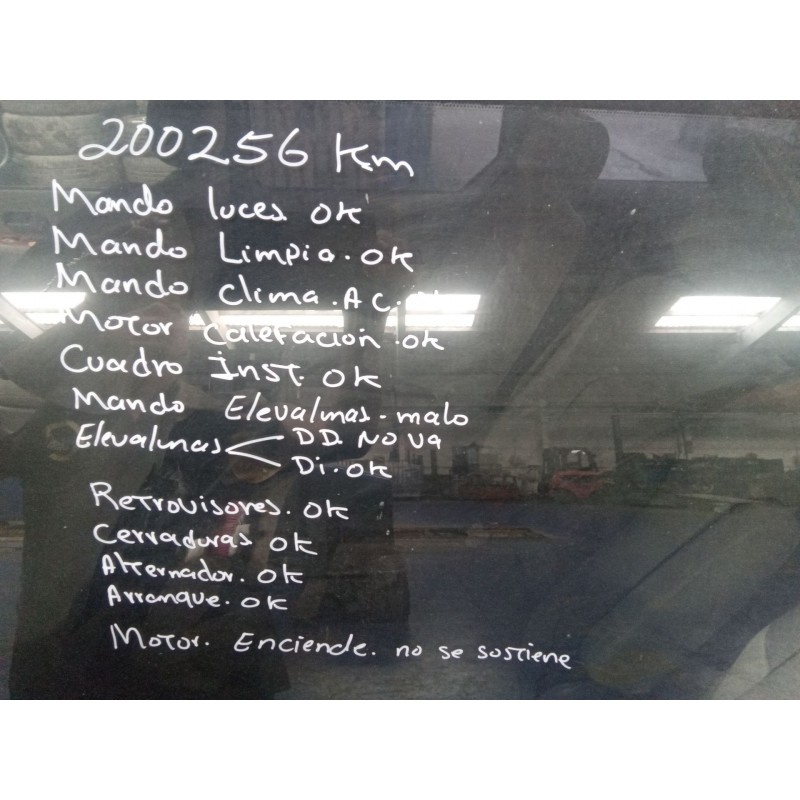 200256 Km
Mando luces OK
Mando Limpia. OK
Mando Clima. A C.
Motor Calefacion. OK
Cuadro Inst. OK
Mando Elevalmas - malo
Elevalmas DD. NO VA
Di. OK
Retrovisores. OK
Cerraduras OK
Alternador. OK
Arranque. OK
Motor. Enciende. no se sostiene